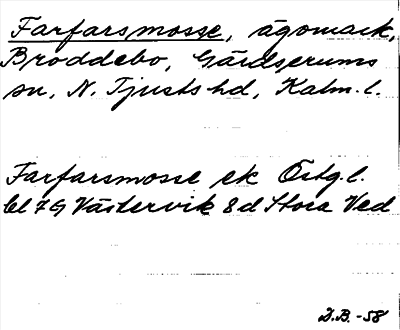 Farfarsmosse, ägomark,
Broddebo, Gärdserums
sn, N. Tjusts hd, Kalm. l.
Farfarsmosse ek Östg. l.
bl 7G Västervik 8d Stora Ved
D.B. -58